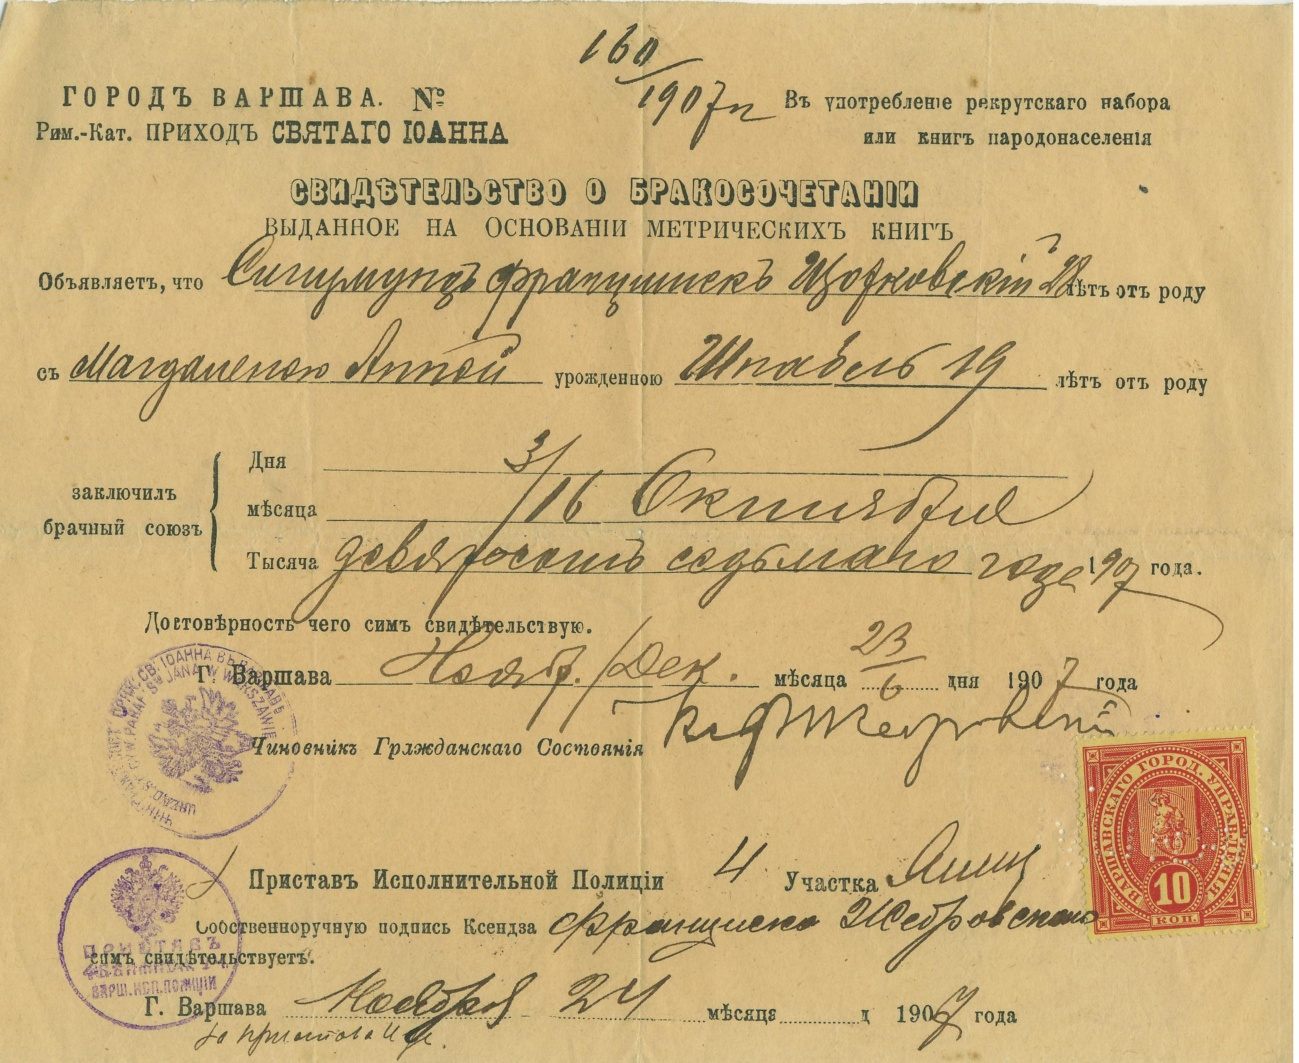 160/1907 г
ГОРОДЪ ВАРШАВА. №
Рим.-Кат. ПРИХОДЪ СВЯТАГО ІОАННА
Въ употребленіе рекрутскаго набора
или книгъ народонаселенія
СВИДѢТЕЛЬСТВО О БРАКОСОЧЕТАНІИ
ВЫДАННОЕ НА ОСНОВАНІИ МЕТРИЧЕСКИХЪ КНИГЪ
Объявляетъ, что Сигизмундъ Францишекъ 28 лѣтъ отъ роду
съ Магдаленою Анной урожденною Шнабель 19 лѣтъ отъ роду
заключилъ
брачный союзъ
Дня 3/16
мѣсяца Октября
Тысяча девятьсотъ седьмаго года 1907 года.
Достовѣрность чего симъ свидѣтельствую.
Г. Варшава Нояб./Дек. мѣсяца 23/6 дня 1907 года
Чиновникъ Гражданскаго Состоянія
СВ. ІОАННА ВЪ ВАРШАВѢ
Sw JANA W WARSZAWIE
ВАРШАВСКАГО ГОРОД. УПРАВЛЕНІЯ
10
КОП.
Приставъ Исполнительной Полиціи 4 Участка
Собственноручную подпись Ксендза Францишка Жебровскаго
симъ свидѣтельствуетъ.
ПРИСТАВЪ
ВАРШ. ИСП. ПОЛИЦІИ
Г. Варшава Ноября 24 мѣсяца д 1907 года
За Пристава